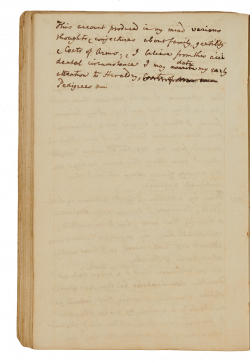 This account produced in my mind various
thoughts & conjectures about family, gentility
& Coats of Arms; & I believe from this acci
dental circumstance I may date my early
attention to Heraldry,
Pedigrees